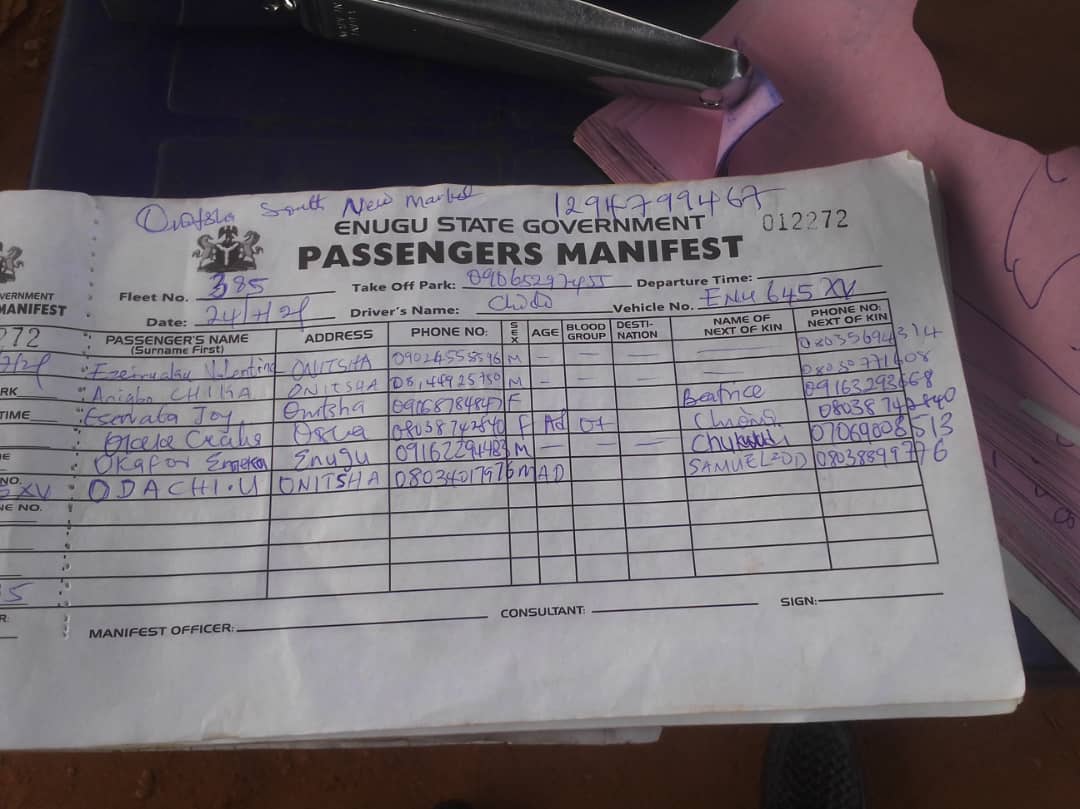 South New Market 1294799467
ENUGU STATE GOVERNMENT
012272
PASSENGERS MANIFEST
Fleet No. 385 Take Off Park: 09065297455 Departure Time:
Date: 24/7/24 Driver's Name: Chidi Vehicle No. ENU 645 XV
PASSENGER'S NAME (Surname First) ADDRESS PHONE NO: SEX AGE BLOOD GROUP DESTI-NATION NAME OF NEXT OF KIN PHONE NO: NEXT OF KIN
Valentine ONITSHA 09024555596 M — — — — 08035694314
Anigbo CHIKA ONITSHA M — — — —
Joy Onitsha 09168784847 F Beatrice 09163293668
08038742840 F Ad O+ 08038742840
Okafor Emeka Enugu 09162294483 M — — — 07069008513
ODACHI.U ONITSHA 08034017976 M AD SAMUEL 08038899776
MANIFEST OFFICER: CONSULTANT: SIGN:
VERNMENT
MANIFEST
272
RK
TIME
NO.
XV
NE NO.